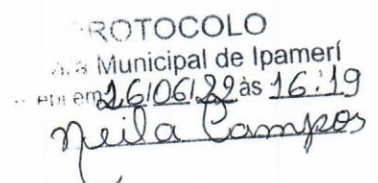 ROTOCOLO
Municipal de Ipamerí
em 26/06/22 às 16:19
Neila Campos